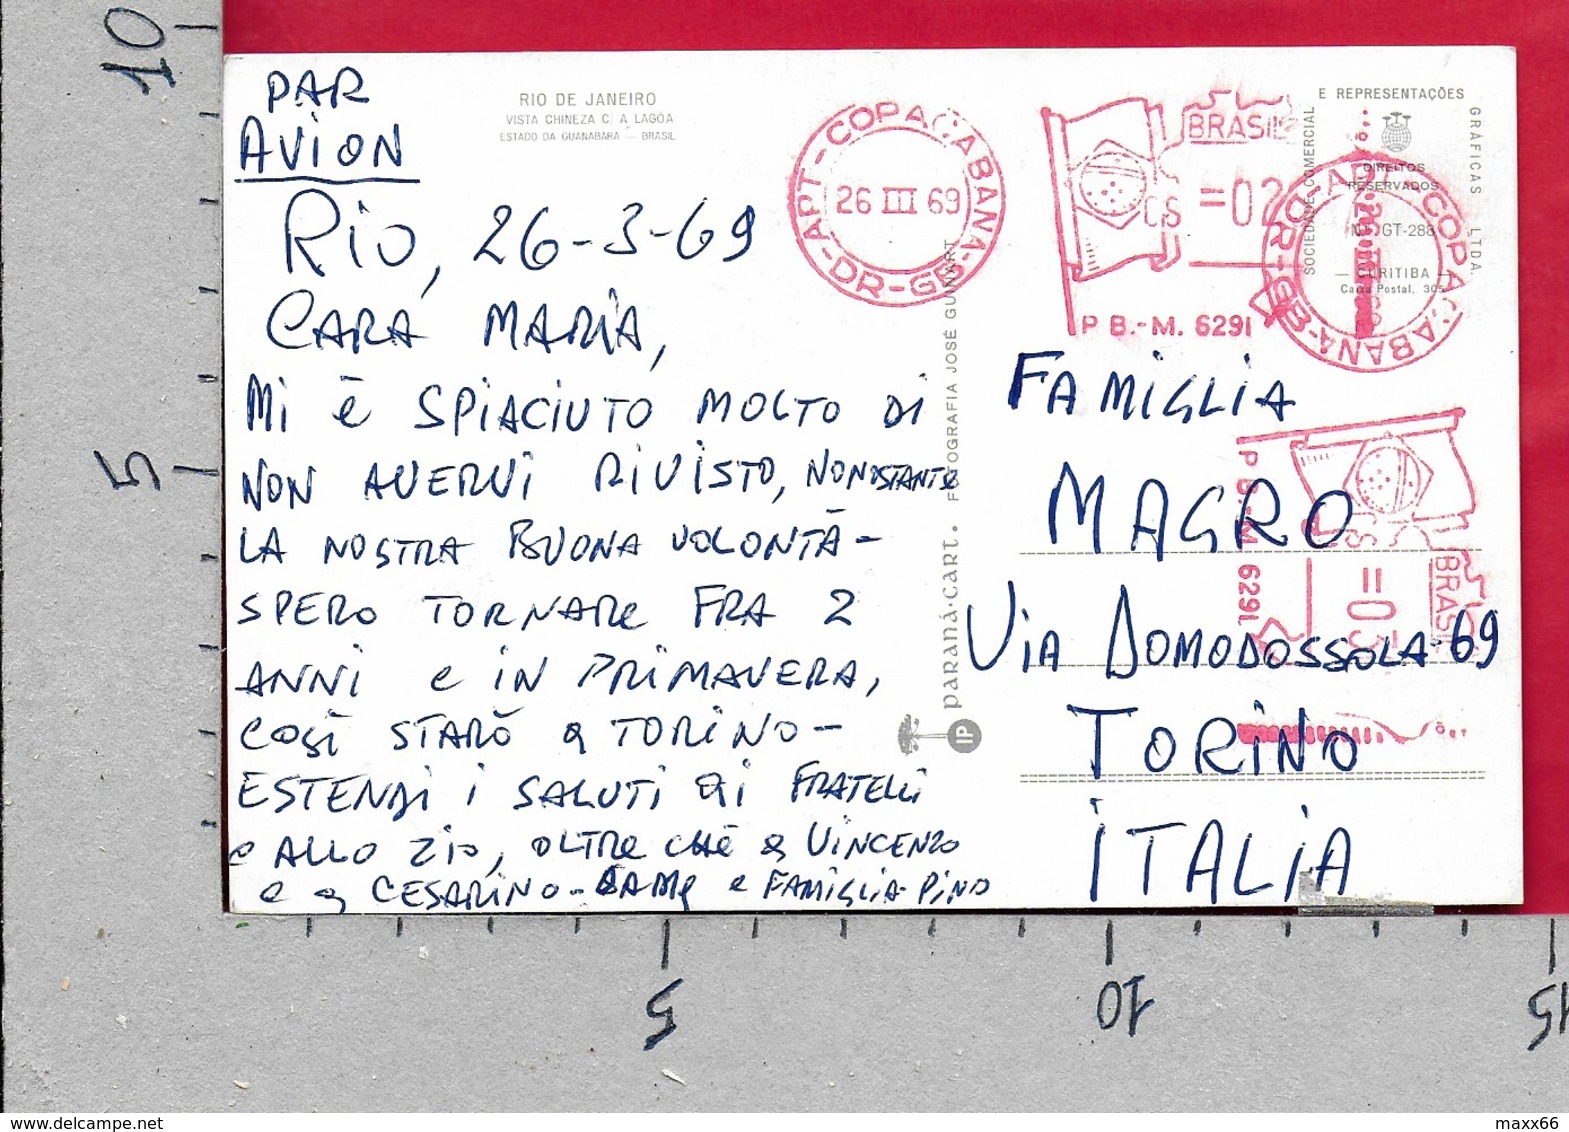 10
5
5
10
15
PAR
AVION
RIO DE JANEIRO
VISTA CHINEZA C/ A LAGÔA
ESTADO DA GUANABARA — BRASIL
Rio, 26-3-69
CARA MARIA,
Mi è SPIACIUTO MOLTO DI
NON AVERVI RIVISTO, NONOSTANTE
LA NOSTRA BUONA VOLONTÀ-
SPERO TORNARE FRA 2
ANNI e IN PRIMAVERA,
COSÌ STARÒ a TORINO-
ESTENDI i SALUTI ai FRATELLI
o ALLO ZIO, OLTRE CHÈ a VINCENZO
e a CESARINO- e FAMIGLIA. PINO
COPACABANA-GB-DR-APT-
26 III 69
BRASIL
=02
P B.-M. 6291
COPACABANA-GB-DR-APT-
BRASIL
=03
P B.-M. 6291
SOCIEDADE COMERCIAL
E REPRESENTAÇÕES
GRÁFICAS LTDA.
DIREITOS
RESERVADOS
GT-288
— CURITIBA —
Caixa Postal, 305
paraná-cart. FOTOGRAFIA JOSÉ GUINART
IP
FAMIGLIA
MAGRO
VIA DOMODOSSOLA-69
TORINO
ITALIA
www.delcampe.net
maxx66